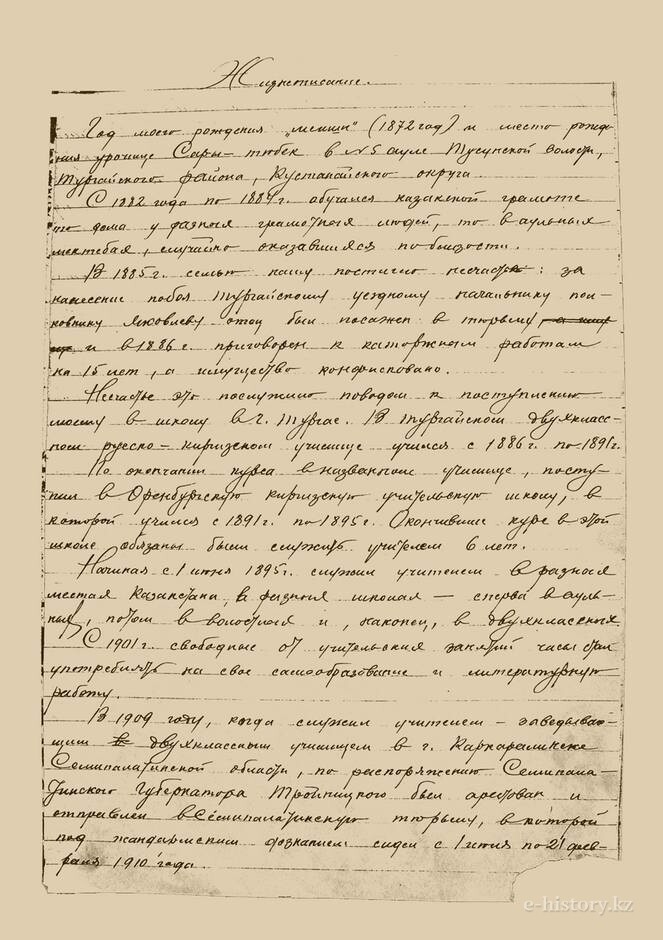 Жизнеописание.
Год моего рождения „мешин“ (1872 год) и место рожде-
ния урочище Сары-тюбек в № 5 ауле Тусунской волости,
Тургайского района, Кустанайского округа.
С 1882 года по 1884 г. обучался казакской грамоте
то дома у разных грамотных людей, то в аульных
мектебах, случайно оказавшихся поблизости.
В 1885 г. семью нашу постигло несчастье: за
нанесение побоя Тургайскому уездному начальнику пол-
ковнику Яковлеву отец был посажен в тюрьму
и в 1886 г. приговорен к каторжным работам
на 15 лет, а имущество конфисковано.
Несчастье это послужило поводом к поступлению
моему в школу в г. Тургае. В Тургайском двухкласс-
ном русско-киргизском училище учился с 1886 г. по 1891 г.
По окончании курса в названном училище, посту-
пил в Оренбургскую киргизскую учительскую школу, в
которой учился с 1891 г. по 1895 г. Окончившие курс в этой
школе обязаны были служить учителем 6 лет.
Начиная с 1 июня 1895 г. служил учителем в разных
местах Казакстана, в разных школах — сперва в ауль-
ных, потом в волостных и, наконец, в двухклассных.
С 1901 г. свободные от учительских занятий часы стал
употреблять на свое самообразование и литературную
работу.
В 1909 году, когда служил учителем-заведываю-
щим двухклассным училищем в г. Каркаралинске
Семипалатинской области, по распоряжению Семипала-
тинского Губернатора Тройницкого был арестован и
отправлен в Семипалатинскую тюрьму, в которой
под жандармским дознанием сидел с 1 июля по 21 фев-
раля 1910 года.
e-history.kz